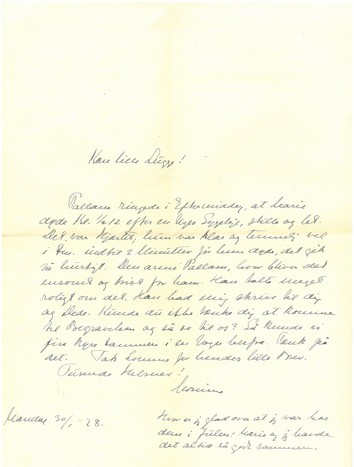 Kære lille Dugge!
Pallam ringede i Eftermiddag, at Marie
døde Kl. ½12 efter en Uges Sygeleje, stille og let.
Det var Hjertet, hun var klar og temmelig vel
i Du. indtil 2 Minutter før hun døde, det gik
så hurtigt. Den arme Pallam, hvor bliver det
ensomt og trist for ham. Han talte meget
roligt om det. Han bad mig skrive til dig
og Dede. Kunde du ikke tænke dig at komme
til Begravelsen og så se til os? Så kunde vi
fire Kyre sammen i en Vogn herfra. Tænk på
det. Tak Lomme for hendes lille Brev.
Tusinde Hilsner!
Mandag 30/1-28.
Hvor er jeg glad over at jeg var hos
dem i Julen! Marie og jeg havde
det altid så godt sammen.